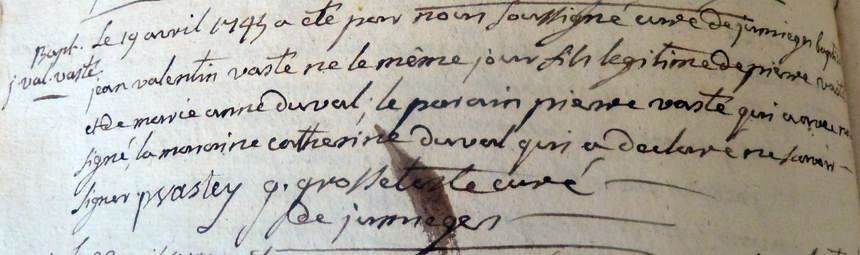 Bapt.
j. val. vasté
Le 19 avril 1743 a été par nous soussigné curé de jumieges baptisé
jean valentin vasté né le même jour fils legitime de pierre vasté
et de marie anne duval. le parain pierre vasté qui a avec nous
signé, la maraine catherine duval qui a declaré ne savoir
signer pvastey g. grosseteste curé
de jumieges